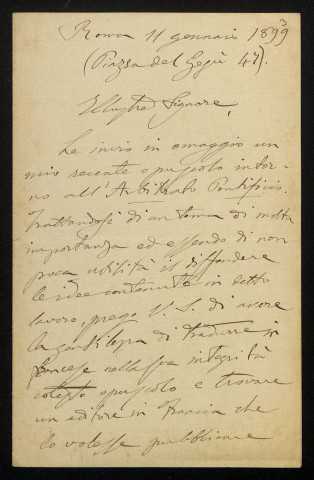 Roma 11 gennaio 1899
(Piazza del Gesù 47).
Illustre Signore,
Le invio in omaggio un
mio recente opuscolo intor-
no all'Arbitrato Pontificio.
Trattandosi di un tema di molta
importanza ed essendo di non
poca utilità il diffondere
le idee contenute in detto
lavoro, prego V. S. di avere
la gentilezza di tradurre in
francese nella sua integrità
cotesto opuscolo e trovare
un editore in Francia che
lo volesse pubblicare